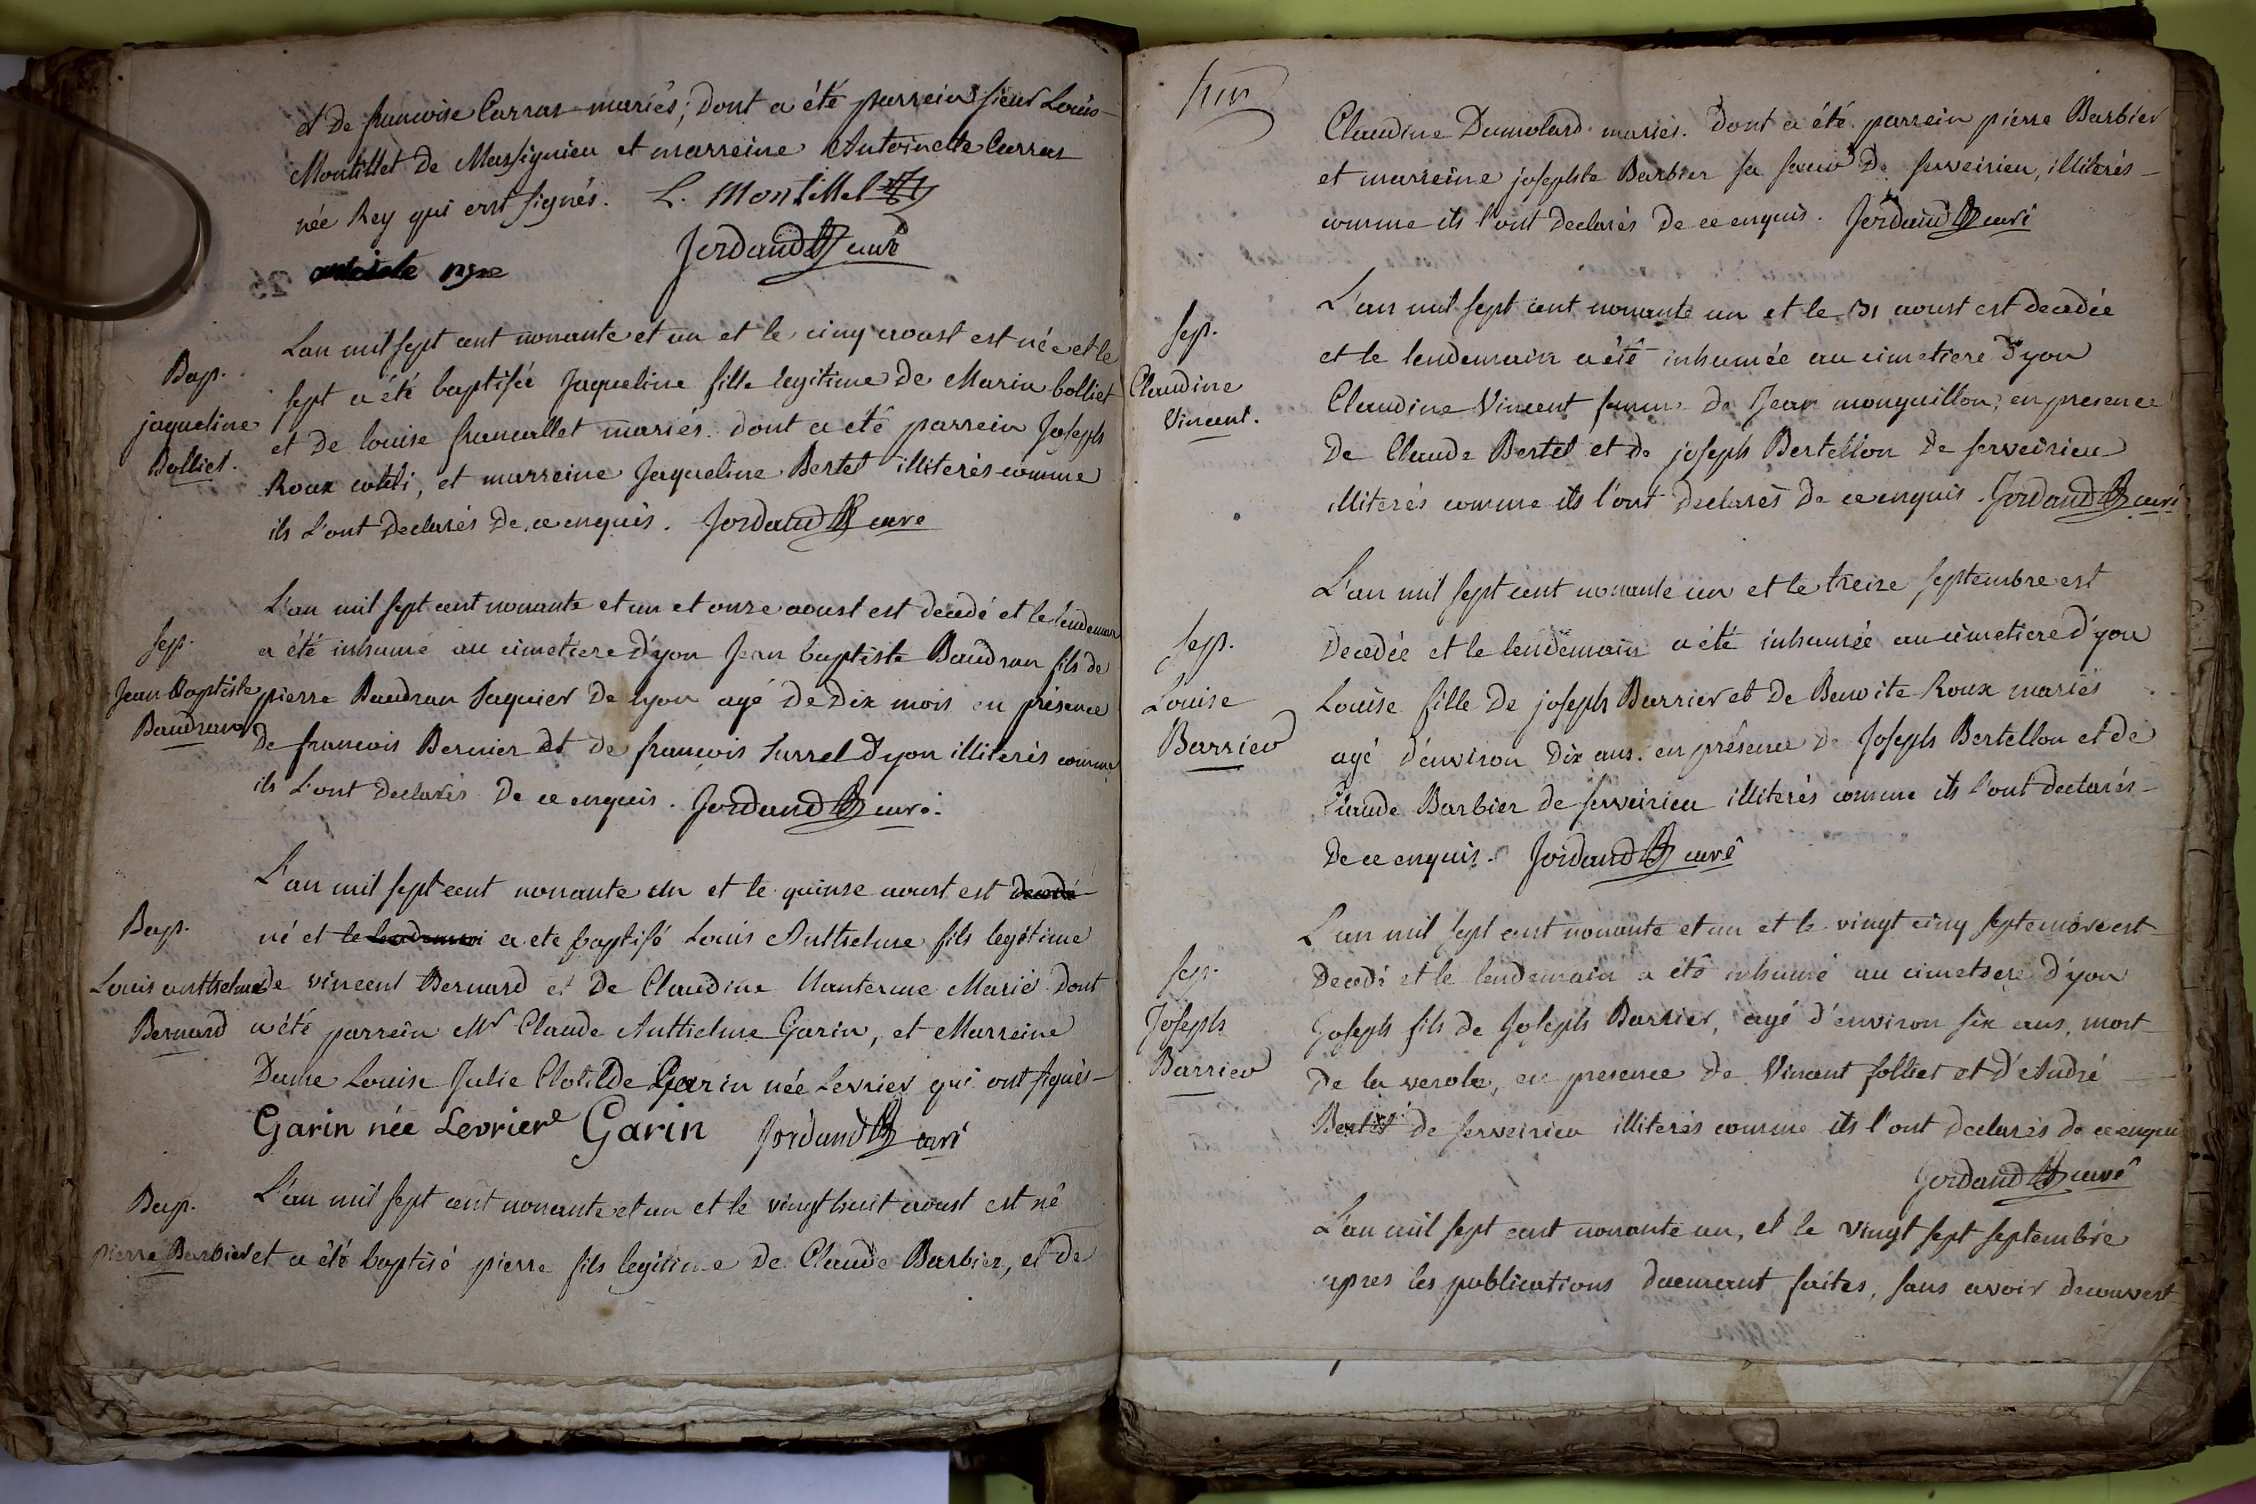 et de francoise Carras mariés; dont a été parrein sieur Louis
Montillet de Massignieu et marreine Antoinette Carras
née Rey qui ont signés. L. Montillet
Jordand curé
Bap.
jaqueline
Bolliet.
L'an mil sept cent nonante et un et le cinq aoust est née et le
sept a été baptisée Jaqueline fille legitime de Marin bolliet
et de louise francallet mariés. dont a été parrein Joseph
Roux, et marreine Jaqueline Bertet illiterés comme
ils L'ont declarés de ce enquis. Jordand curé
Sep.
Jean Baptiste
Baudran
L'an mil sept cent nonante et un et onze aoust est decedé et le lendemain
a été inhumé au cimetiere d'yon Jean baptiste Baudran fils de
pierre Baudran Laquier de lyon agé de dix mois en présence
de francois Bernier et de francois Surrel d'yon illiterés comme
ils L'ont declarés de ce enquis. Jordand curé.
Bap.
Louis anthelme
Bernard
L'an mil sept cent nonante un et le quinse aoust est decedé
né et le lendemai a ete baptisé Louis Anthelme fils legitime
de vincent Bernard et de Claudine Nanterme Mariés dont
a été parrein Mr Claude Anthelme Garin, et Marreine
Dame Louise Julie Clotilde Garin née Levrier qui ont signés
Garin née Levrier Garin Jordand curé
Bap.
pierre Barbier
L'an mil sept cent nonante et un et le vingt huit aoust est né
et a été baptisé pierre fils legitime de Claude Barbier, et de
Claudine Dumolard mariés. dont a été parrein pierre Barbier
et marreine josephte Barbier sa soeur de serveirieu, illiterés
comme ils l'ont declarés de ce enquis. Jordand curé
Sep.
Claudine
Vincent.
L'an mil sept cent nonante un et le 31 aoust est decedée
et le lendemain a été inhumée au cimetiere d'yon
Claudine Vincent femme de Jean monguillon, en presence
de Claude Bertet et de joseph Bertellon de serveirieu
illiterés comme ils l'ont declarés de ce enquis. Jordand curé
Sep.
Louise
Barrier
L'an mil sept cent nonante un et le treize septembre est
decedée et le lendemain a été inhumée au cimetiere d'yon
Louise fille de joseph Barrier et de Benoite Roux mariés
agé d'environ dix ans. en présence de Joseph Bertellon et de
Claude Barbier de serveirieu illiterés comme ils l'ont declarés
de ce enquis. Jordand curé
Sep.
Joseph
Barrier
L'an mil sept cent nonante et un et le vingt cinq septembre est
decedé et le lendemain a été inhumé au cimetiere d'yon
Joseph fils de Joseph Barrier, agé d'environ six ans, mort
de la verole, en presence de Vincent folliet et d'André
Bertet de serveirieu illiterés comme ils l'ont declarés de ce enquis
Jordand curé
L'an mil sept cent nonante un, et le vingt sept septembre
apres les publications duement faites, sans avoir decouvert